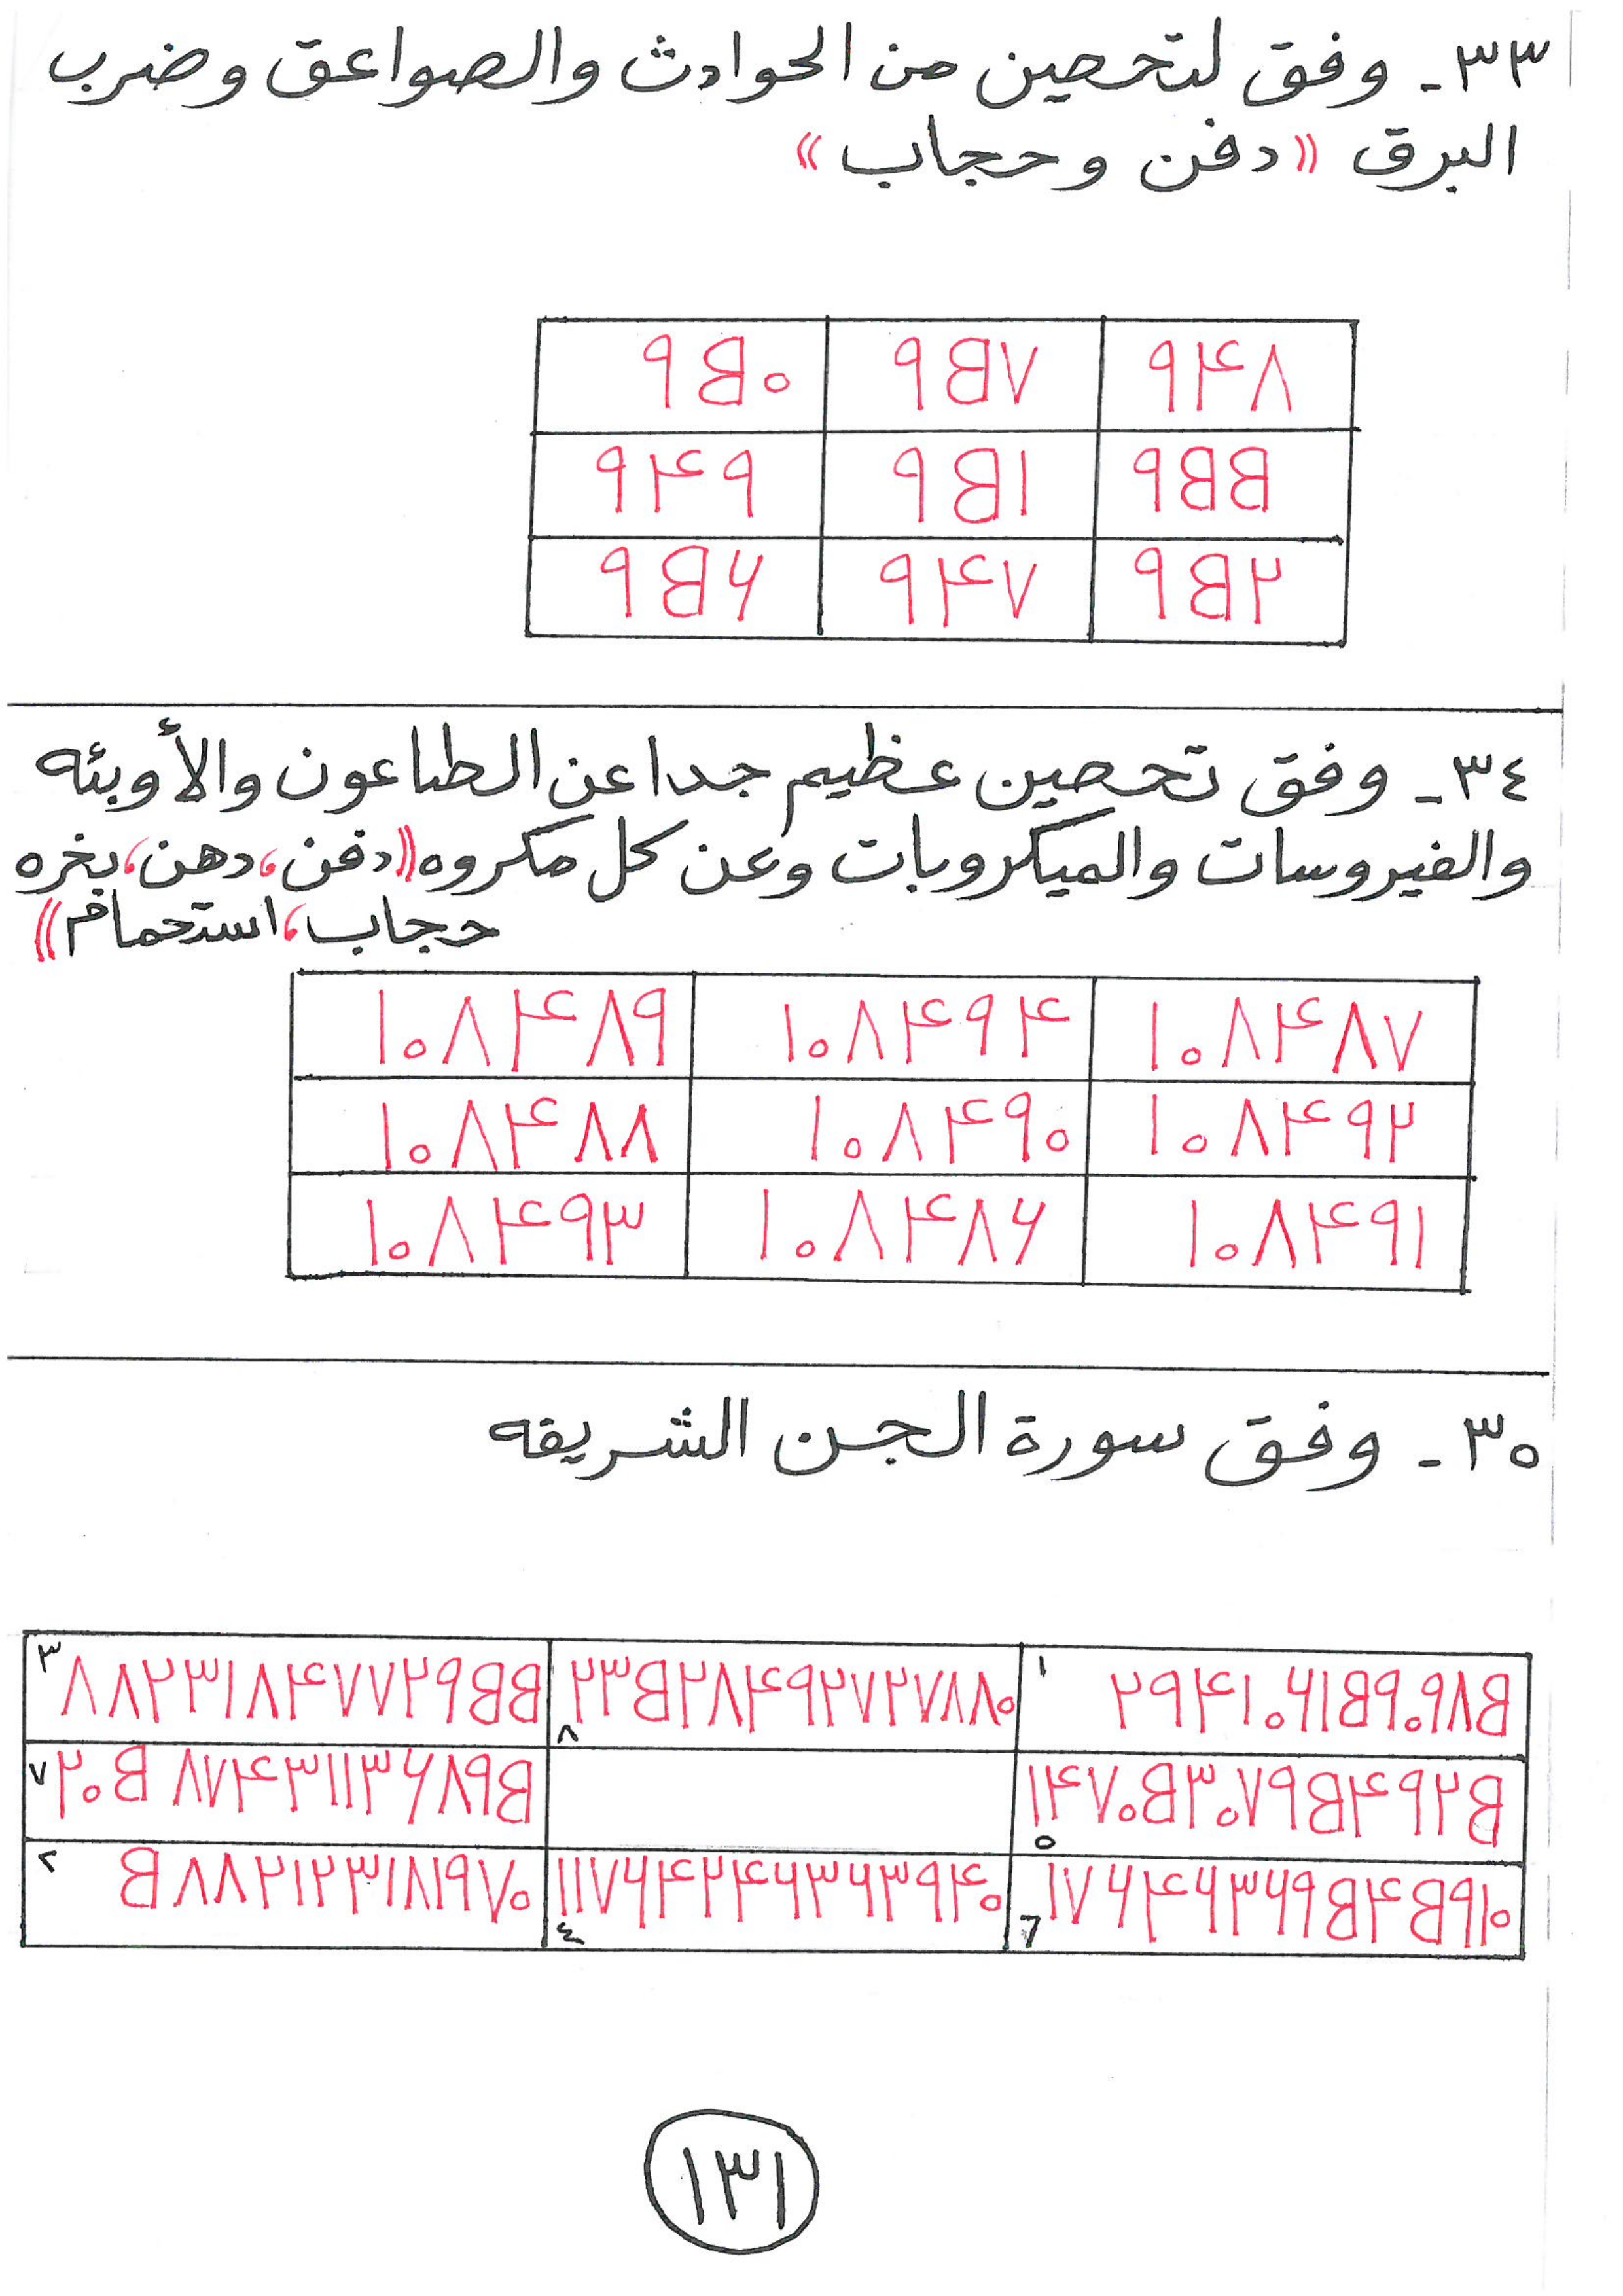 ٣٣- وفق لتحصين من الحوادث والصواعق وضرب
البرق ((دفن وحجاب))
٩٥٠ ٩٥٧ ٩٤٨
٩٤٩ ٩٥١ ٩٥٥
٩٥٦ ٩٤٧ ٩٥٢
٣٤- وفق تحصين عظيم جدا عن الطاعون والأوبئه
والفيروسات والميكروبات وعن كل مكروه ((دفن، دهن، بخره
حجاب، استحمام))
١٠٨٤٨٩ ١٠٨٤٩٤ ١٠٨٤٨٧
١٠٨٤٨٨ ١٠٨٤٩٠ ١٠٨٤٩٢
١٠٨٤٩٣ ١٠٨٤٨٦ ١٠٨٤٩١
٣٥- وفق سورة الجن الشريفه
٣ ٨٨٢٣١٨٤٧٧٢٩٥٥ ٨ ٢٣٥٢٨٤٩٢٧٢٧٨٨٠ ١ ٢٩٤١٠٦١٥٩٠٩٨٥
٧ ٢٠٥٨٧٤٣١١٣٦٨٩٥ ٥ ١٤٧٠٥٣٠٧٩٥٤٩٢٥
٢ ٥٨٨٢١٢٣١٨١٩٧٠ ٤ ١١٧٦٤٢٤٦٣٦٣٩٤٠ ٦ ١٧٦٤٦٣٦٩٥٤٥٩١٠
١٣١